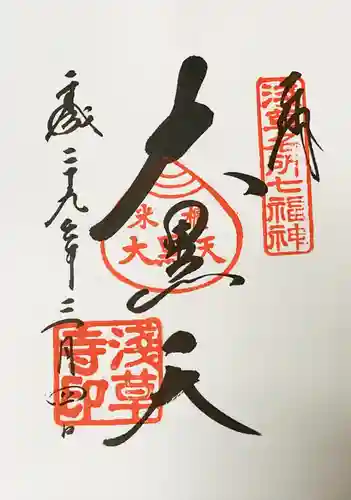 奉拝
浅草名所七福神
大黒天
米櫃
大黒天
平成二十九年三月四日
浅草寺印